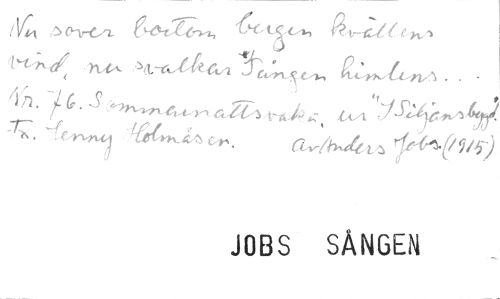 Nu sover bortom bergen kvällens
vind, nu svalkar ängen himlens...
Nr. 76. Sommarnattsvaka, ur "I Siljansbygd".
Fr. Jenny Holmåsen. av Anders Jobs (1915)
JOBS SÅNGEN